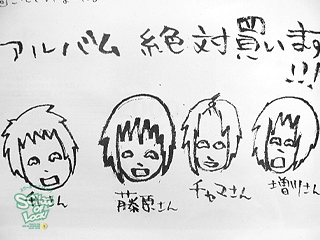 アルバム 絶対買います
!!!
藤原さん
チャマさん
増川さん